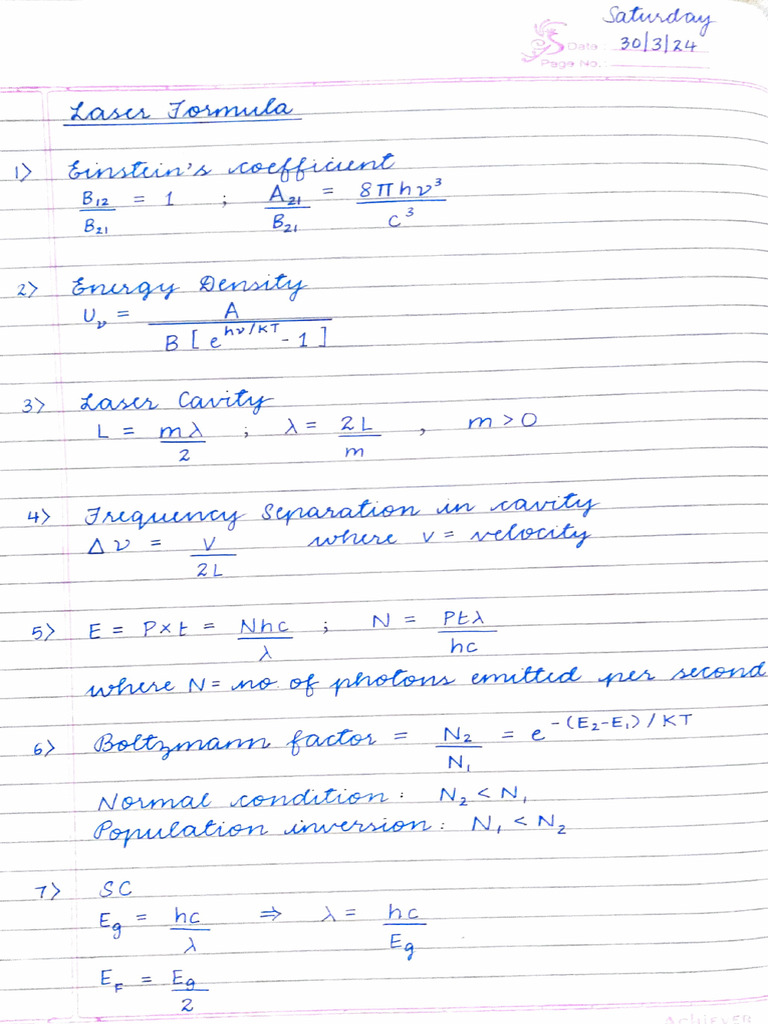 Saturday
Date 30/3/24
Page No.:
Laser Formula
1> Einstein's coefficient
B₁₂/B₂₁ = 1 ; A₂₁/B₂₁ = 8πhν³/c³
2> Energy Density
Uν = A / B [e^(hν/KT) - 1]
3> Laser Cavity
L = mλ/2 ; λ = 2L/m , m > 0
4> Frequency Separation in cavity
Δν = v/2L where v = velocity
5> E = P×t = Nhc/λ ; N = Ptλ/hc
where N = no. of photons emitted per second
6> Boltzmann factor = N₂/N₁ = e^(-(E₂-E₁)/KT)
Normal condition : N₂ < N₁
Population inversion : N₁ < N₂
7> SC
Eg = hc/λ ⇒ λ = hc/Eg
E_F = Eg/2
ACHIEVER